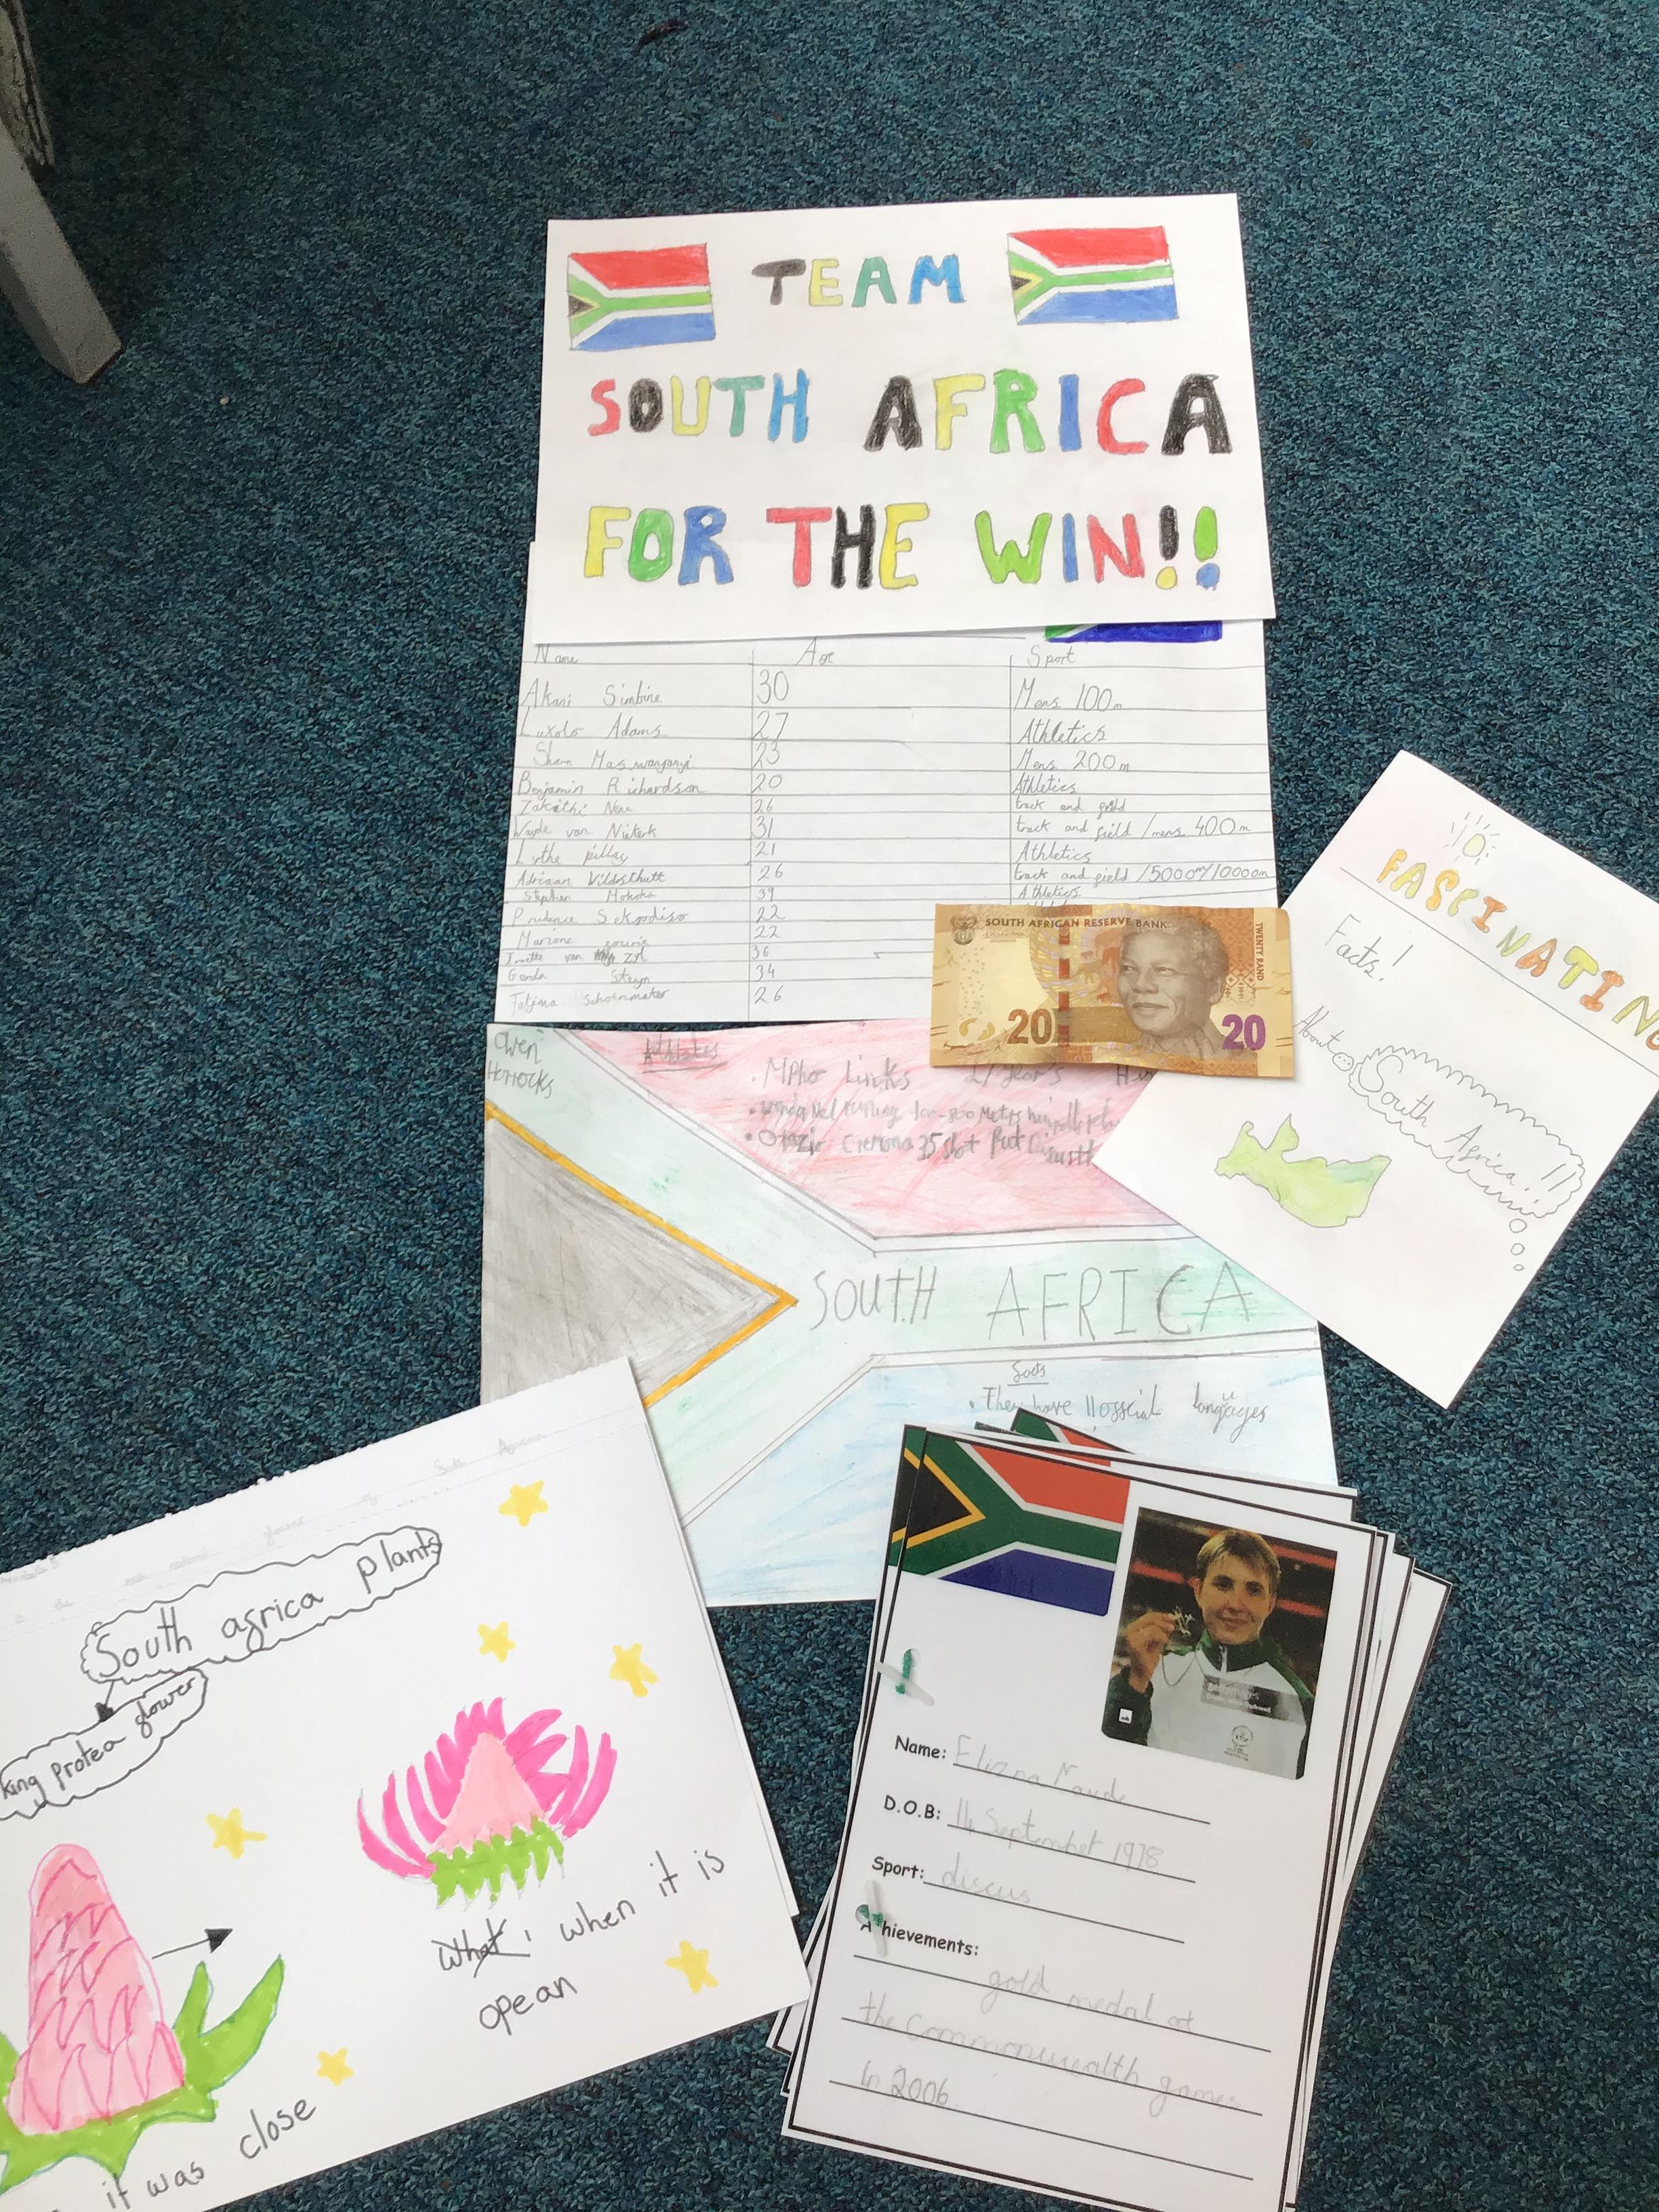 TEAM
SOUTH AFRICA
FOR THE WIN!!
Name Age Sport
Akani Simbine 30 Mens 100m
Luxolo Adams 27 Athletics
Shaun Maswanganyi 23 Mens 200m
Benjamin Richardson 20 Athletics
Zakithi Nene 26 track and field
Wayde van Niekerk 31 track and field /mens 400m
Lythe pillay 21 Athletics
Adriaan Wildschutt 26 track and field /5000m/10000m
Stephen Mokoka 39 Athletics
Prudence Sekgodiso 22
Marione 22
van Zyl 36
Gerda Steyn 34
Tatjana Schoenmaker 26
SOUTH AFRICAN RESERVE BANK
TWENTY RAND
20 20
FASCINATING
Facts!
About
South
Africa!!
Owen
Horrocks
Athletes
• Mpho Links 21 years
running 100-800 Metres
• Orazio Cremona 35 Shot Put
SOUTH AFRICA
facts
• They have 11 official languages
South africa plants
king protea flower
What, when it is
opean
it was close
Name:
D.O.B: 14 September 1978
Sport: discus
Achievements:
gold medal at
the Commonwealth games
in 2006